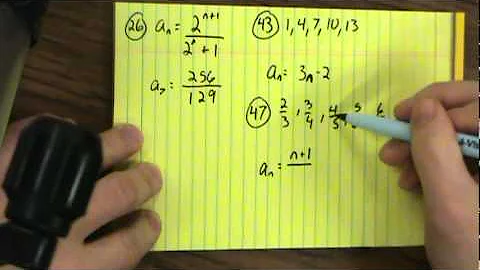 26 aₙ = 2ⁿ⁺¹ / 2ⁿ + 1
a₇ = 256 / 129
43 1, 4, 7, 10, 13
aₙ = 3n - 2
47 2/3, 3/4, 4/5, 5
aₙ = n+1